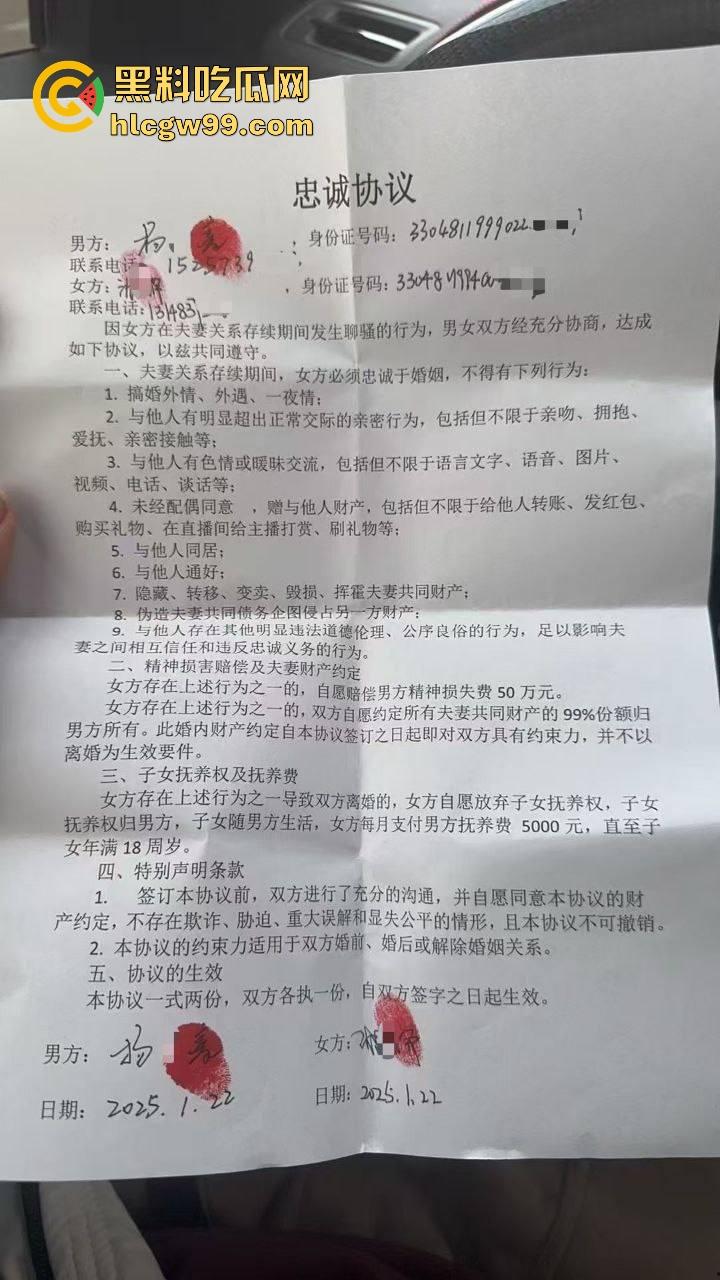 黑料吃瓜网
hlcgw99.com
忠诚协议
男方： 身份证号码：
联系电话
女方： ，身份证号码：
联系电话:
因女方在夫妻关系存续期间发生聊骚的行为，男女双方经充分协商，达成
如下协议，以兹共同遵守。
一、夫妻关系存续期间，女方必须忠诚于婚姻，不得有下列行为：
1. 搞婚外情、外遇、一夜情；
2. 与他人有明显超出正常交际的亲密行为，包括但不限于亲吻、拥抱、
爱抚、亲密接触等；
3. 与他人有色情或暧昧交流，包括但不限于语言文字、语音、图片、
视频、电话、谈话等；
4. 未经配偶同意 ，赠与他人财产，包括但不限于给他人转账、发红包、
购买礼物、在直播间给主播打赏、刷礼物等；
5. 与他人同居；
6. 与他人通好；
7. 隐藏、转移、变卖、毁损、挥霍夫妻共同财产；
8. 伪造夫妻共同债务企图侵占另一方财产；
9. 与他人存在其他明显违法道德伦理、公序良俗的行为，足以影响夫
妻之间相互信任和违反忠诚义务的行为。
二、精神损害赔偿及夫妻财产约定
女方存在上述行为之一的，自愿赔偿男方精神损失费 50 万元。
女方存在上述行为之一的，双方自愿约定所有夫妻共同财产的 99%份额归
男方所有。此婚内财产约定自本协议签订之日起即对双方具有约束力，并不以
离婚为生效要件。
三、子女抚养权及抚养费
女方存在上述行为之一导致双方离婚的，女方自愿放弃子女抚养权，子女
抚养权归男方，子女随男方生活，女方每月支付男方抚养费 5000 元，直至子
女年满 18 周岁。
四、特别声明条款
1. 签订本协议前，双方进行了充分的沟通，并自愿同意本协议的财
产约定，不存在欺诈、胁迫、重大误解和显失公平的情形，且本协议不可撤销。
2. 本协议的约束力适用于双方婚前、婚后或解除婚姻关系。
五、协议的生效
本协议一式两份，双方各执一份，自双方签字之日起生效。
男方： 女方：
日期： 2025.1.22 日期：2025.1.22